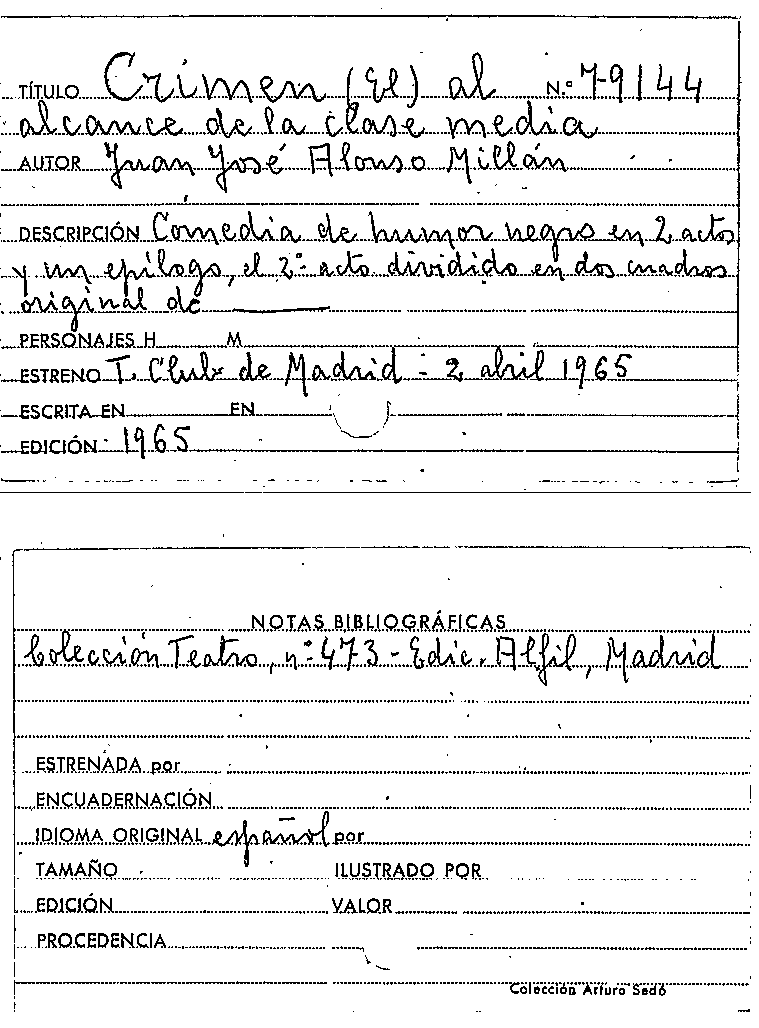 TÍTULO Crimen (El) al N.º 79144
alcance de la clase media
AUTOR Juan José Alonso Millán
DESCRIPCIÓN Comedia de humor negro en 2 actos
y un epílogo, el 2º acto dividido en dos cuadros
original de
PERSONAJES H M
ESTRENO T. Club de Madrid - 2 abril 1965
ESCRITA EN EN
EDICIÓN 1965
NOTAS BIBLIOGRÁFICAS
Colección Teatro, nº 473 - Edic. Alfil, Madrid
ESTRENADA por
ENCUADERNACIÓN
IDIOMA ORIGINAL español por
TAMAÑO ILUSTRADO POR
EDICIÓN VALOR
PROCEDENCIA
Colección Arturo Sedó